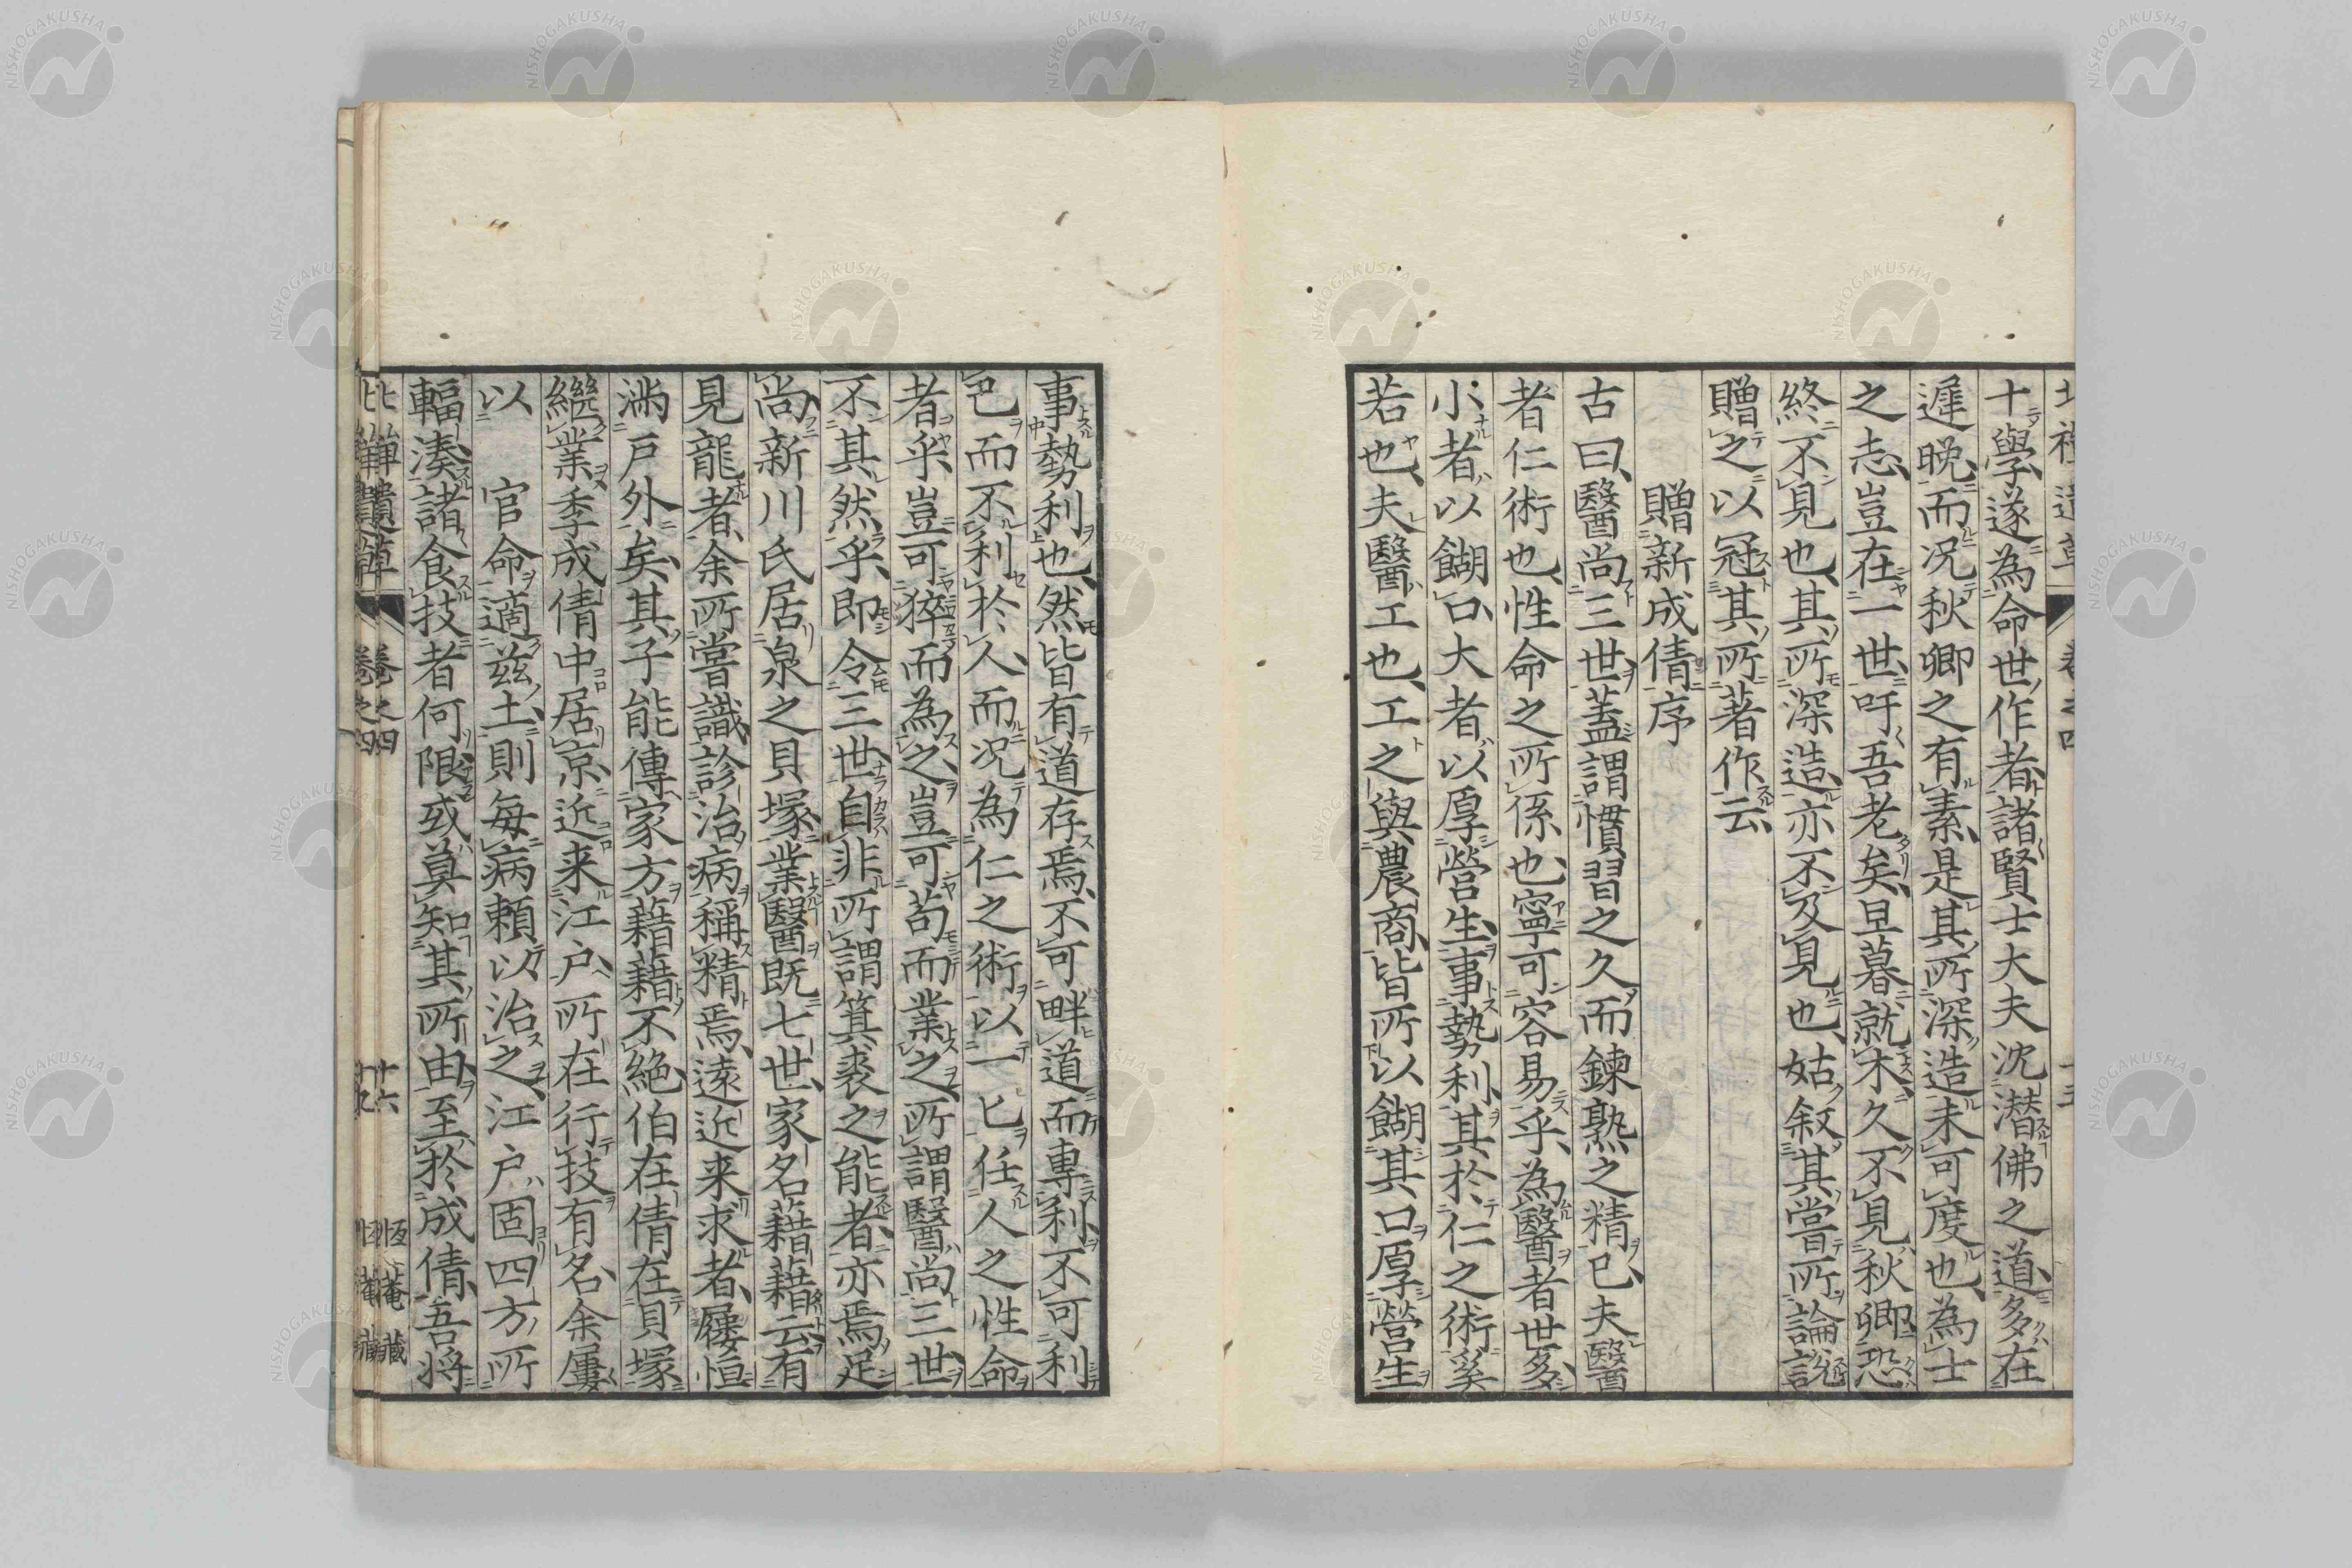 十學遂為命世作者諸賢士大夫沈潜佛之道多在
遲晚而况秋卿之有素是其所深造未可度也為士
之志豈在一世吁吾老矣旦暮就木久不見秋卿恐
終不見也其所深造亦不及見也姑叙其嘗所論說
贈之以冠其所著作云
贈新成倩序
古曰醫尚三世蓋謂慣習之久而鍊熟之精已夫醫
者仁術也性命之所係也寧可容易乎為醫者世多
小者以餬口大者以厚營生事勢利其於仁之術奚
若也夫醫工也工之與農商皆所以餬其口厚營生
事勢利也然皆有道存焉不可畔道而專利不可利
已而不利於人而况為仁之術以一匕任人之性命
者乎豈可猝而為之豈可苟而業之所謂醫尚三世
不其然乎即令三世自非所謂箕裘之能者亦焉足
尚新川氏居泉之貝塚業醫既七世家名藉藉云有
見龍者余所嘗識診治病稱精焉遠近来求者屨恒
滿戶外矣其子能傳家方藉藉不絶伯在倩在貝塚
繼業季成倩中居京近来江戶所在行技有名余屢
以　官命適茲土則每病頼以治之江戶固四方所
輻湊諸食技者何限或莫知其所由至於成倩吾将
卷之四
十六
恆菴藏